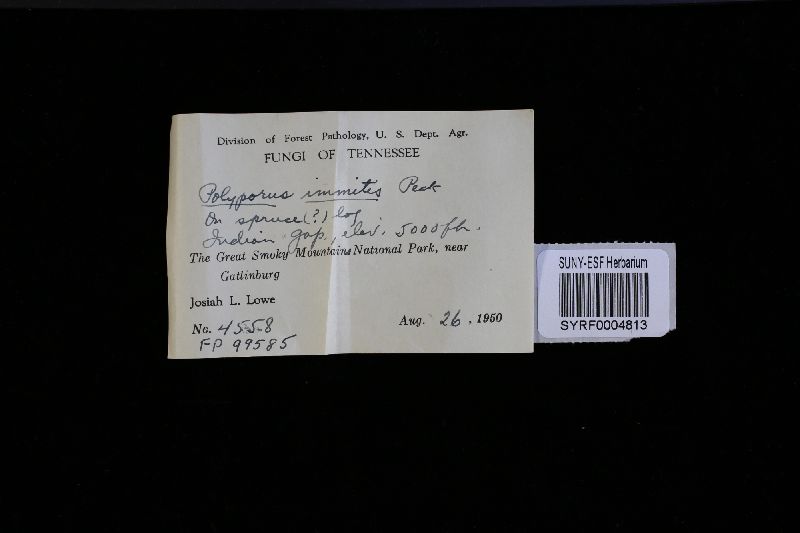 Division of Forest Pathology, U. S. Dept. Agr.
FUNGI OF TENNESSEE
Polyporus immitis Peck
On spruce(?) log
Indian Gap, elev. 5000 ft.
The Great Smoky Mountains National Park, near
Gatlinburg
Josiah L. Lowe
No. 4558
Aug. 26, 1950
FP 99585
SUNY-ESF Herbarium
SYRF0004813